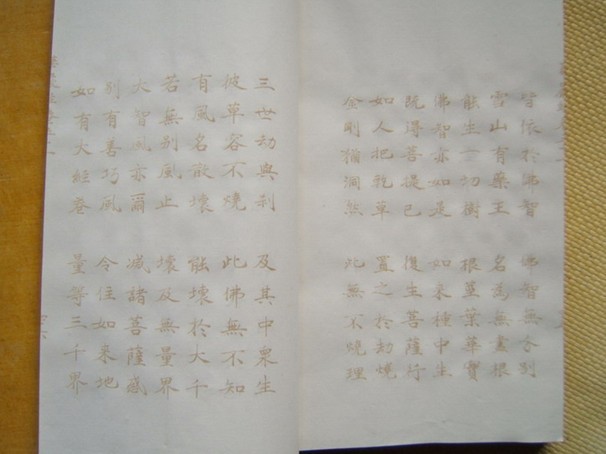 皆依於佛智　佛智無分別
雪山有藥王　名為無盡根
能生一切樹　根莖葉華實
佛智亦如是　如來種中生
既得菩提已　復生菩薩行
如人把乾草　置之於劫燒
金剛猶洞然　此無不燒理
三世劫與剎　及其中衆生
彼草容不燒　此佛無不知
有風名散壞　能壞於大千
若無別風止　壞及無量界
大智風亦爾　滅諸菩薩惑
別有善巧風　令住如來地
如有大經卷　量等三千界